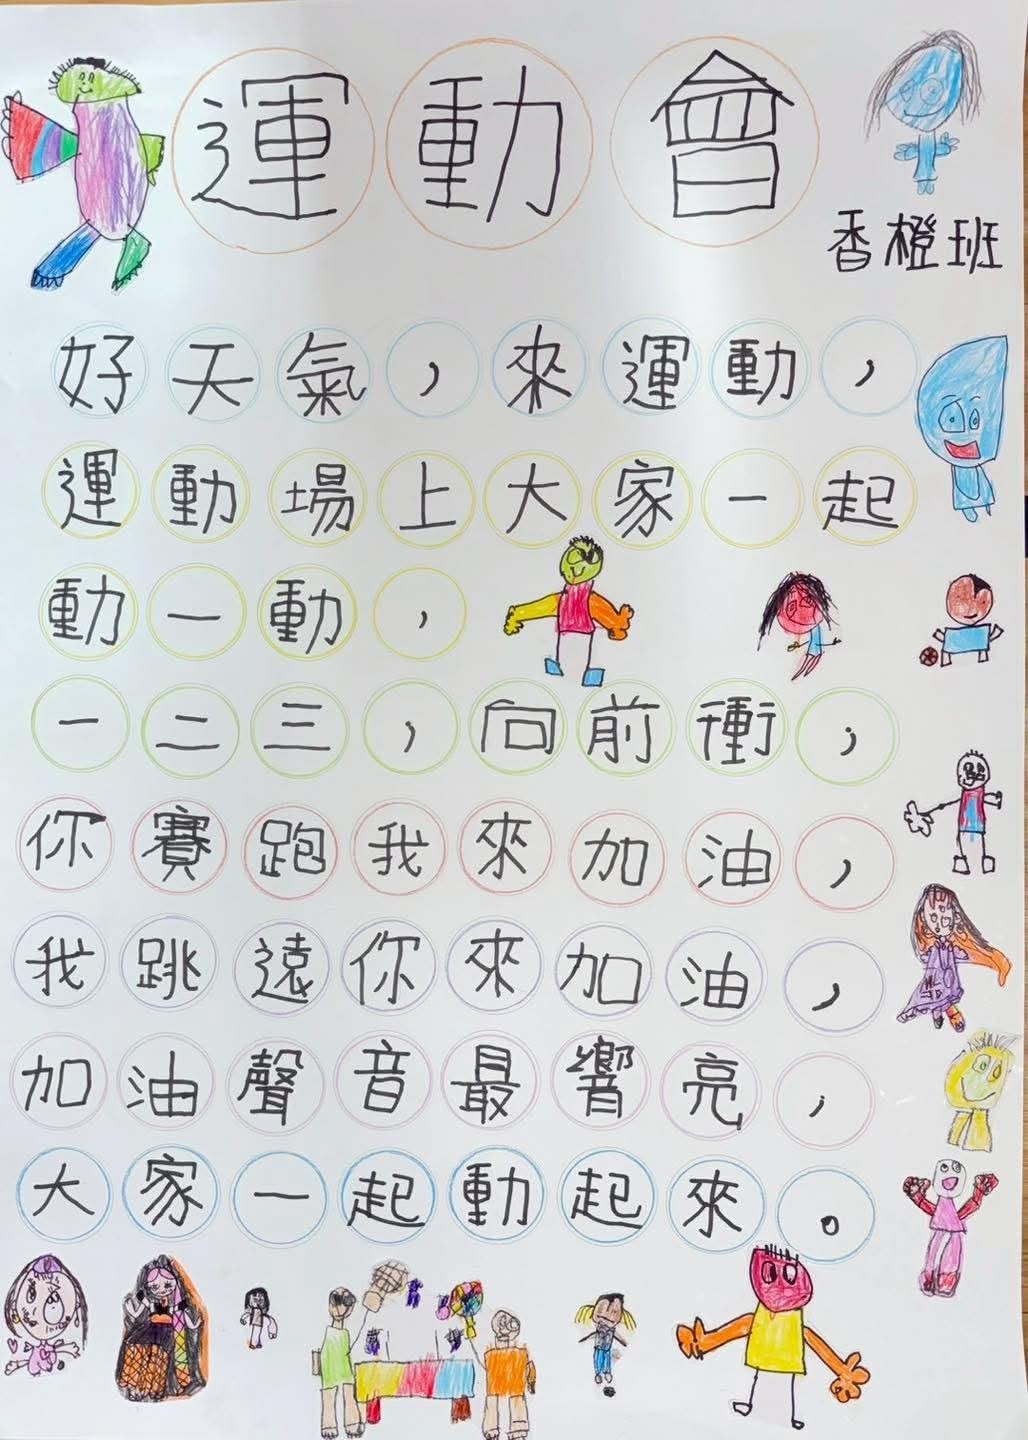 運動會
香橙班
好天氣，來運動，
運動場上大家一起
動一動，
一二三，向前衝，
你賽跑我來加油，
我跳遠你來加油，
加油聲音最響亮，
大家一起動起來。